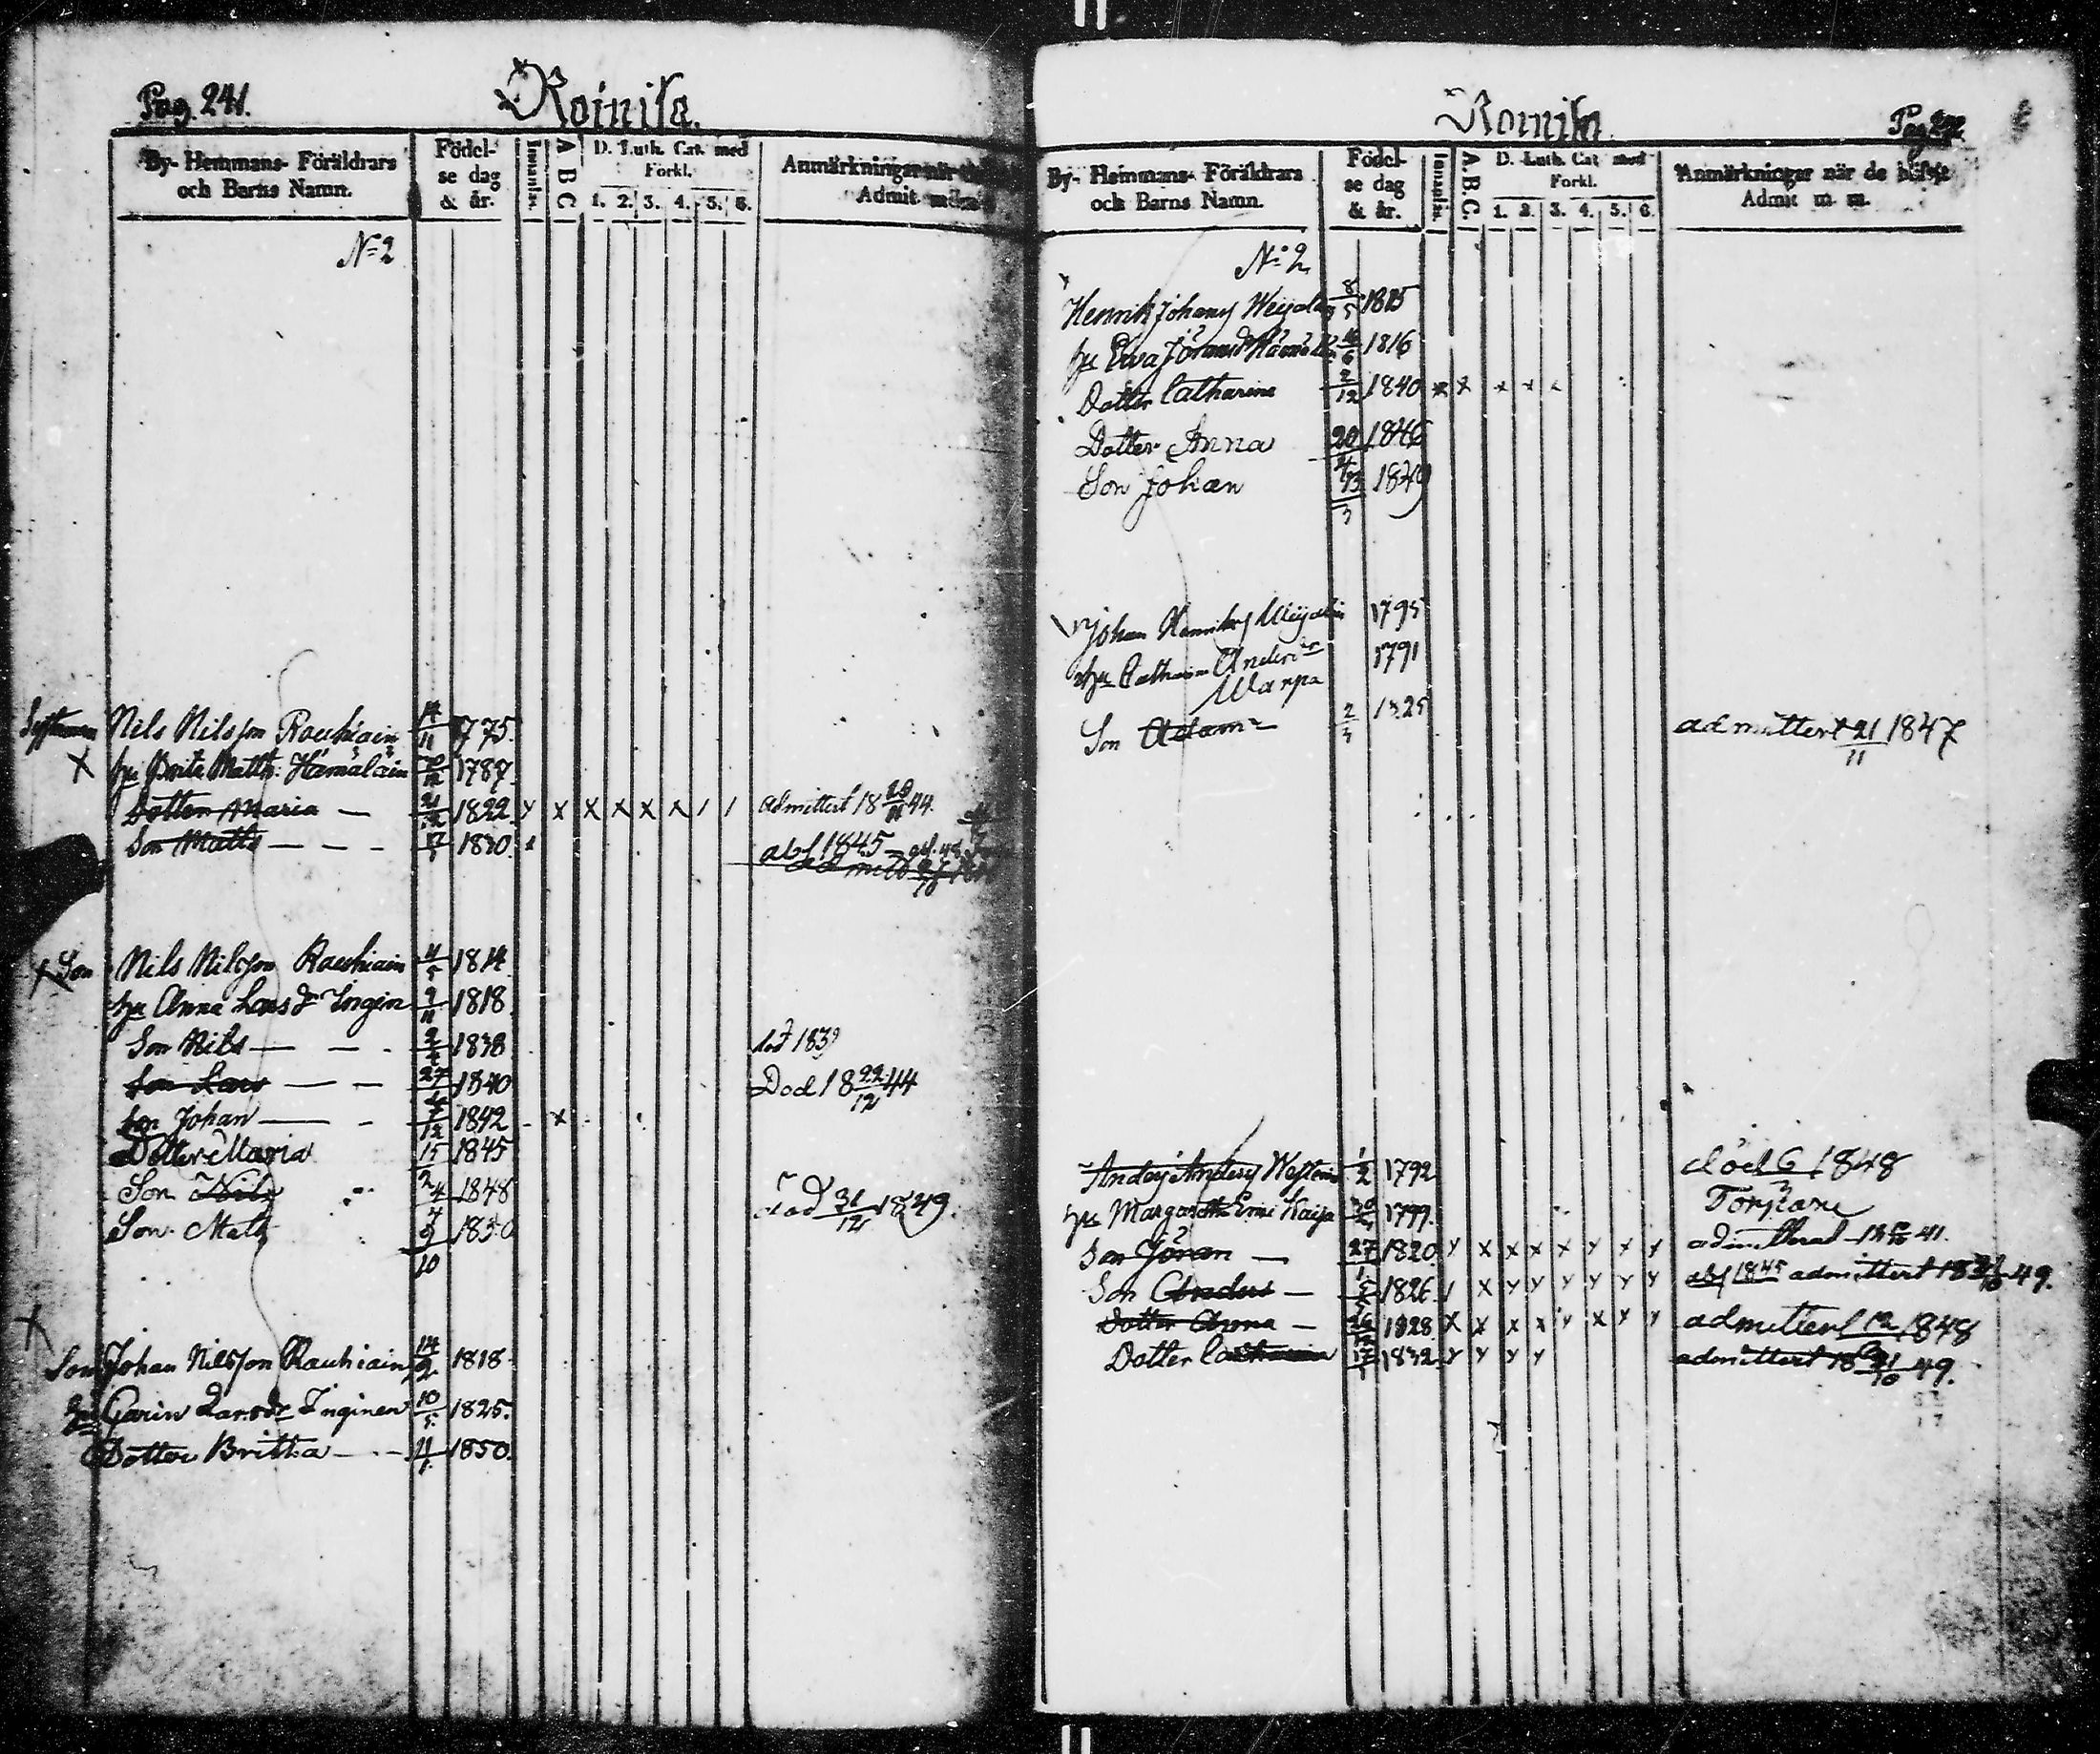 Pag. 241.
Roinila.
By- Hemmans- Föräldrars och Barns Namn.
Födel-se dag & år.
Innanläs.
A B C
D. Luth. Cat. med Förkl.
1. 2. 3. 4. 5. 6.
Anmärkningar när
Admit.
N:o 2
Nils Nilsson Rauhiain 14/11 1775.
X hu Brita Matts: Hämäläin 1787.
Dotter Maria — 21/12 1822 admittert 18 44.
Son Matts — — — 1830. abs 1845
X Son Nils Nilsson Rauhiain 4/5 1814
hu Anna Larsdr Ingin 9/11 1818
Son Nils — — 1838 död 1839
Son Lars — — 27 1840 Död 18 22/12 44
Son Johan — 7/12 1842 x
Dotter Maria 15 1845
Son Nils 24 1848 död 31/12 1849.
Son Mats 9/10 1850
X
Son Johan Nilsson Rauhiain 14/2 1818
hu Carin Larsdr Inginen 10/5 1825.
Dotter Britta — 1850.
Roinila
Pag
By- Hemmans- Föräldrars och Barns Namn.
Födel-se dag & år.
Innanläs.
A. B. C.
D. Luth. Cat. med Förkl.
1. 2. 3. 4. 5. 6.
Anmärkningar när de blifvit Admit m. m.
N:o 2
Henrik Johans 8/5 1815
hu Ewa 1816
Dotter Catharina 2/12 1840 x x x x
Dotter Anna 20 1846
Son Johan 1849
Johan 1795
hu Anders dr 1791
Warpa
Son Adam 2/3 1825 admittert 21/11 1847
Anders Anders 1/2 1792 död 6/3 1848
hu Margaretha 1799. Torpare
Son Göran — 27/1 1820 41.
Son Anders — 1826 abs 1845 admittert 18 49.
Dotter Anna — 26/12 1828 admittert 1848
Dotter Catharina 17 1832 admittert 18 21/10 49.